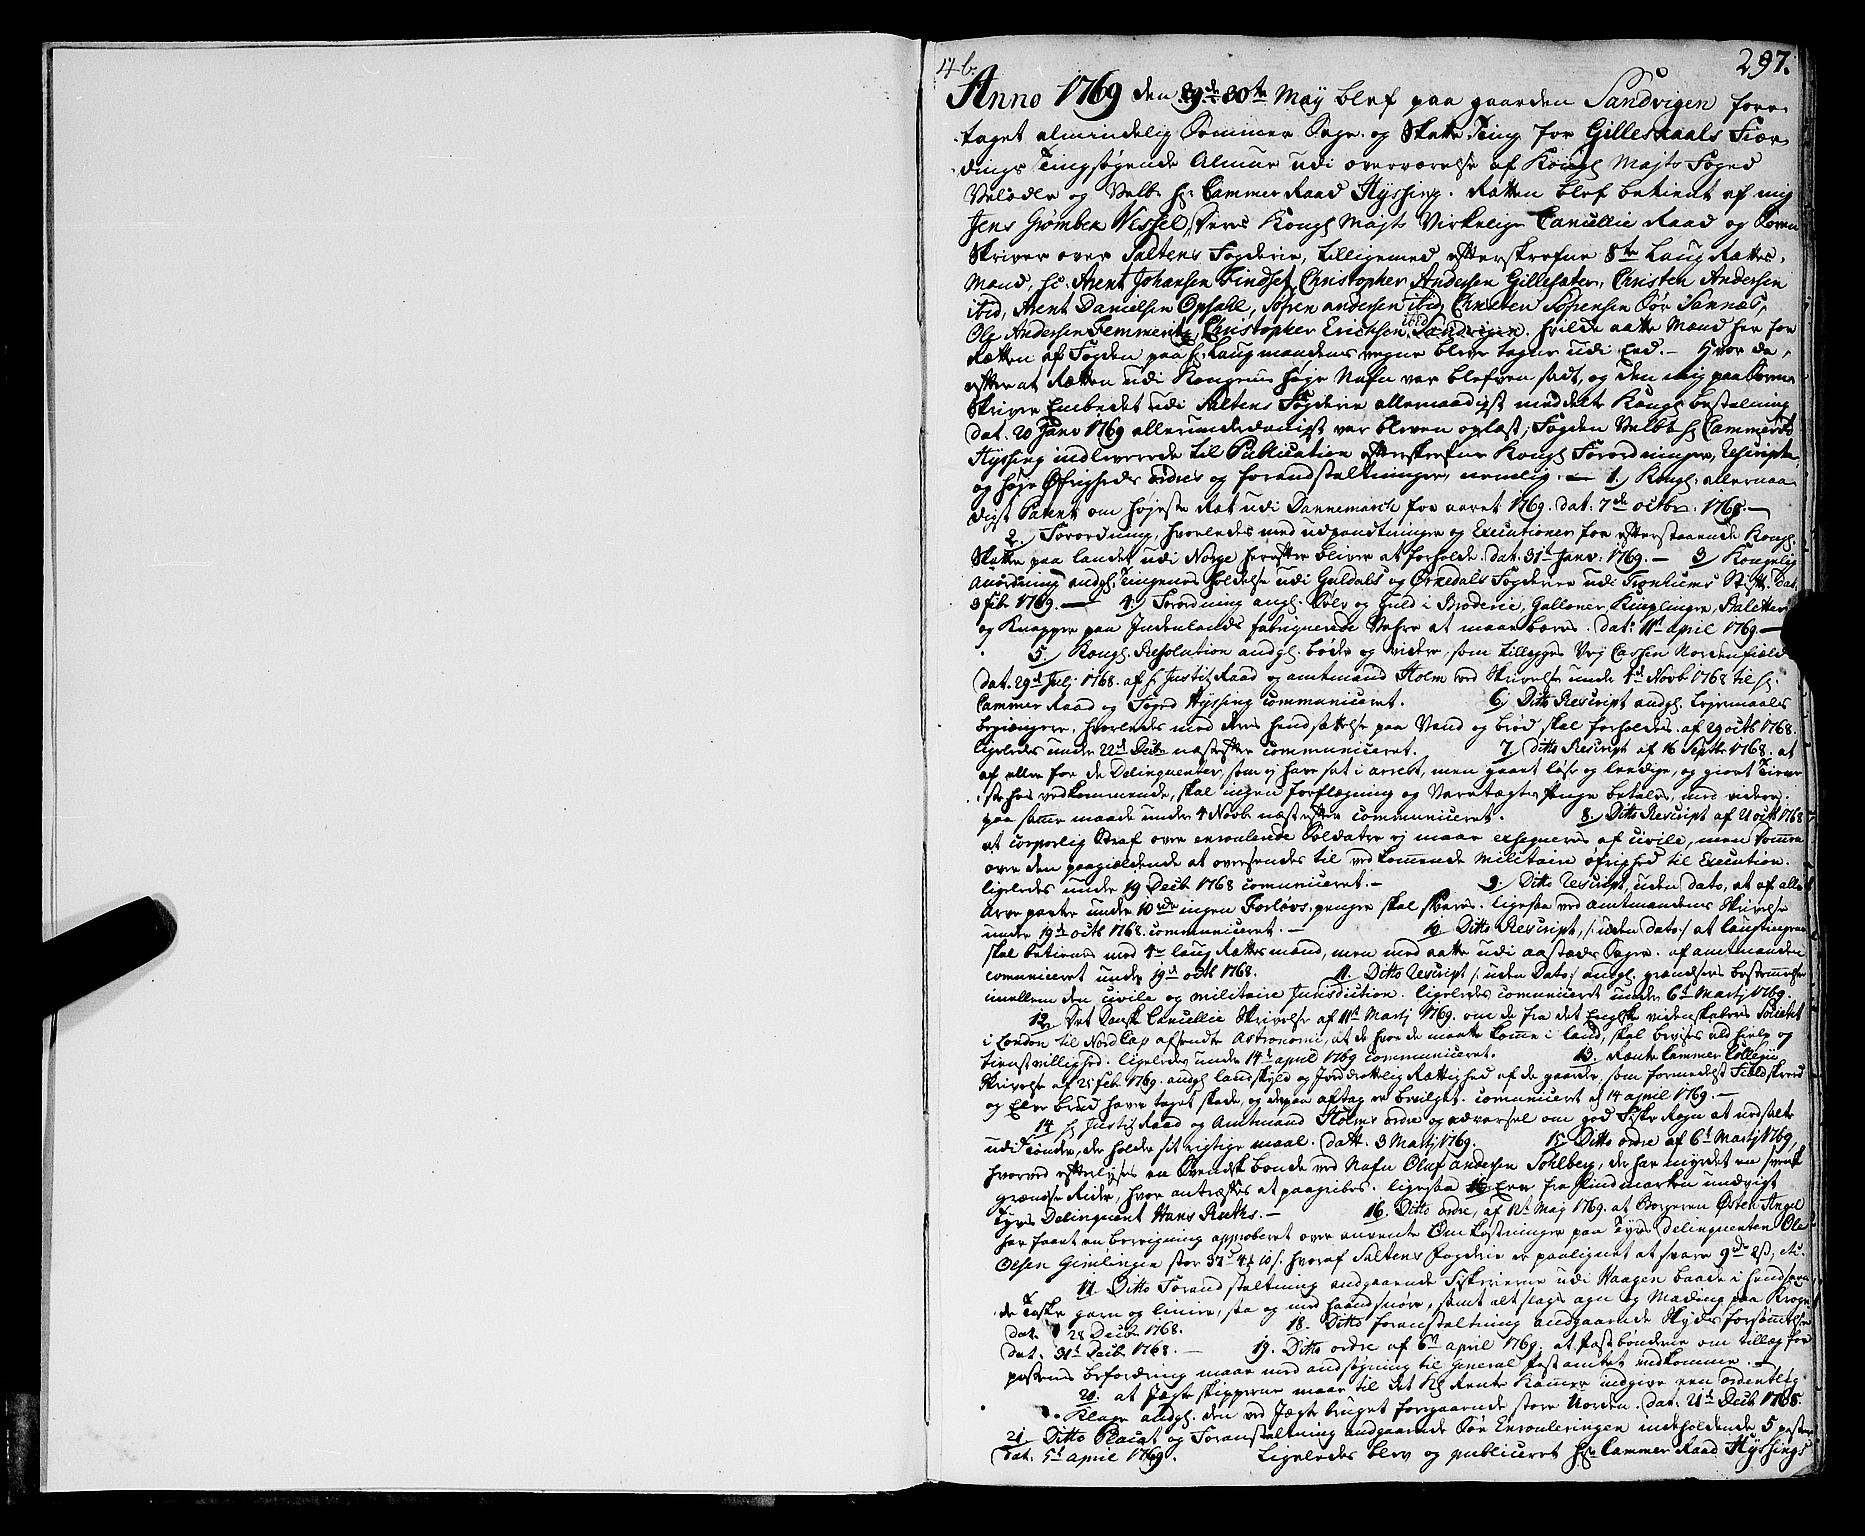 4 b. 297.
Anno 1769 den 29de 30te Maÿ blef paa gaarden Sandvigen fore-
taget almindelig Sommer Sage- og Skatte Ting for Gilleskaals Fiær-
dings Tingsøgende Almue udi overværelse af Kongl Majts Foged
Velædle og Velbr Hr Cammer Raad Hÿssing. Rætten blef betient af mig
Jens Grømben Wessel, Deres Kongl Majts Virkelige Cancellie Raad og Soren-
Skriver over Saltens Fogderie, tilligemed efterskrefne 8te Laug Rættes-
Mænd, sc: Arent Johansen Lindset, Christopher Andersen Gillesæter, Christen Andersen
ibid, Arent Danielsen Opsall, Søren andersen ibid, Christen Sørensen Sør Sannæs,
Ole Andersen Femmeriis, Christopher Erichsen ibid Sandvigen. hvilke aatte Mænd her for
Rætten af Fogden paa H: Laugmandens vegne bleve tagne udi Eed. - Hvor da,
efter at Rætten udi Kongens høye Nafn var blefven sadt, og den mig paa Soren-
Skriver Embedet udi Saltens Fogderie allernaadigst meddelte Kongl bestalning
dat. 20 Janv 1769 allerunderdanigst var bleven oplæst; Fogden Velbr Hr Cammerrd
Hÿssing indleverede til Publication efterskrefne Kongl Forordninger, Rescripter,
og høye Øfrigheds ordres og foranstaltninger, nemlig. - 1. Kongl: allernaa-
digst Patent om højeste Ræt udi Dannemarck for aaret 1769. dat: 7de octbr. 1768. -
2. Forordning, hvorledes med udpandtninger og Executioner for efterstaaende Kongl.
Skatter paa landet udi Norge herefter bliver at forholde. dat: 31t Janv. 1769. - 3. Kongelig
Anordning andgl: Tingenes holdelse udi Guldals og Ørkedals Fogderier udi Tronhiems Stift. Dat.
3 Febr 1769. - 4. Forordning angl. Sølv og Guld i Broderie, Galloner, Knuplinger, Paletter
og Knapper paa Indenlands fabriqverede Vahre at maae bæres. dat: 11t april 1769. -
5. Kongl. Resolution andgl. bøder og videre, som tillegges Vej Cassen Nordenfields
dat. 29d Julj 1768. af H Justitz Raad og amtmand Holm ved Skrivelse under 1d Novb 1768 til H:
Cammer Raad og Foged Hÿssing communiceret. 6. Ditto Rescript andgl. Lejermaals
begiængere, hvorledes med deres hendsættelse paa Vand og brød skal forholdes. af 29 octb 1768.
ligeledes under 22d Decbr næstefter communiceret. 7. Ditto Rescript af 16 Septbr 1768. at
af eller for de Delinqventer, som ej have sat i arrest, men gaaet løse og leedige, og giort Tiene-
ste hos vedkommende, skal ingen forflegning og Varetægts Penge betales, med videre.
paa samme maade under 4 Novbr næstefter communiceret. 8. Ditto Rescript af 21 octb 1768
at corporlig Straf over enroulerede Soldater ej maae exseqveres af civile, men Domme
over den paagieldende at oversendes til vedkommende militaire øfrighed til Execution.
ligeledes under 19 Decb 1768 comuniceret. - 9. Ditto Rescript, uden dato, at af alle
Arve parter under 10 rdr ingen Forlovs penger skal svares. ligesaa ved amtmandens Skrivelse
under 19d octb 1768. communiceret. - 10. Ditto Rescript, /: uden dato :/ at Laugtingene
skal betienes med 4re laug Rættes mænd, men med aatte udi aasteds Sager. af amtmanden
comuniceret under 19d octb 1768. 11. Ditto Rescript /: uden Dato :/ andgl. grændsers bestemmelse
imellem den civile og militaire Jurisdiction. ligeledes comuniceret under 6d Martj 1769.
12. Det Danske Cancellie Skrivelse af 11d Martj 1769. om de fra det Englske videnskabers Societet
i London til Nord Cap afsendte Astronomi, at de hvor de maatte komme i land, skal bevises ald hielp og
tienstvillighed. ligeledes under 14d april 1769 communiceret. 13. Rente Cammer Collegii
Skrivelse af 25 Febr 1769. andgl. landskyld og Jorddrottlig Rættighed af de gaarder, som formedelst Fieldskreed
og Elve brud haver taget skade, og derpaa aftag er bevilget. comuniceret d 14 april 1769. -
14 H Justitz Raad og Amtmand Holms ordre og advarsel om god Fiske Rogn at nedsalte
udi tønder, der holder sit rigtige maal. datt. 3 Martj 1769. 15. Ditto ordre af 6d Martj 1769,
hvorved efterlyses en Svendsk bonde ved Nafn Oluf andersen Sohlberg, der har myrdet en svensk
grændse Rider, hvor antræffes at paagribes. ligesaa Een fra Findmarken undvigt
Tyvs Delinqvent Hans Ruths. - 16. Ditto ordre, af 12t Maj 1769. at Borgeren Østen Angel
har faaet en beregning approberet over anvente Omkostninger paa Tyvs Delinqventen Ole
Olsen Gimlingen stor 37d 4 10 s. hvoraf Saltens Fogderie er paalignet at svare 9 rdr
17 Ditto Foranstaltning andgaaende Fiskerierne udi Vaagen baade i henseen-
de Torske garn og linier, saa og med haandsnøre, samt alt slags agn og Mading paa Kroge
dat. 28 Decbr 1768. 18. Ditto foranstaltning andgaaende Skyds forsømmelse
dat. 31d Decbr 1768. - 19. Ditto ordre af 6te april 1769, at postbønderne om tillæg for
postens befordring maae med ansøgning til General Post amtet indkomme. -
20. at Jægte skipperne maae til det Kgl Rente Kammer indgive een ordentlig
Klage andgl. den ved Jægte bruget forgaaende store Uorden. dat. 21d Decb 1768.
21 Ditto Placat og Foranstaltning andgaaende Søe Enrouleringen indeholdende 5 poster
dat. 5d april 1769. Ligeledes blev og publiceret Hr Cammer Raad Hÿssings